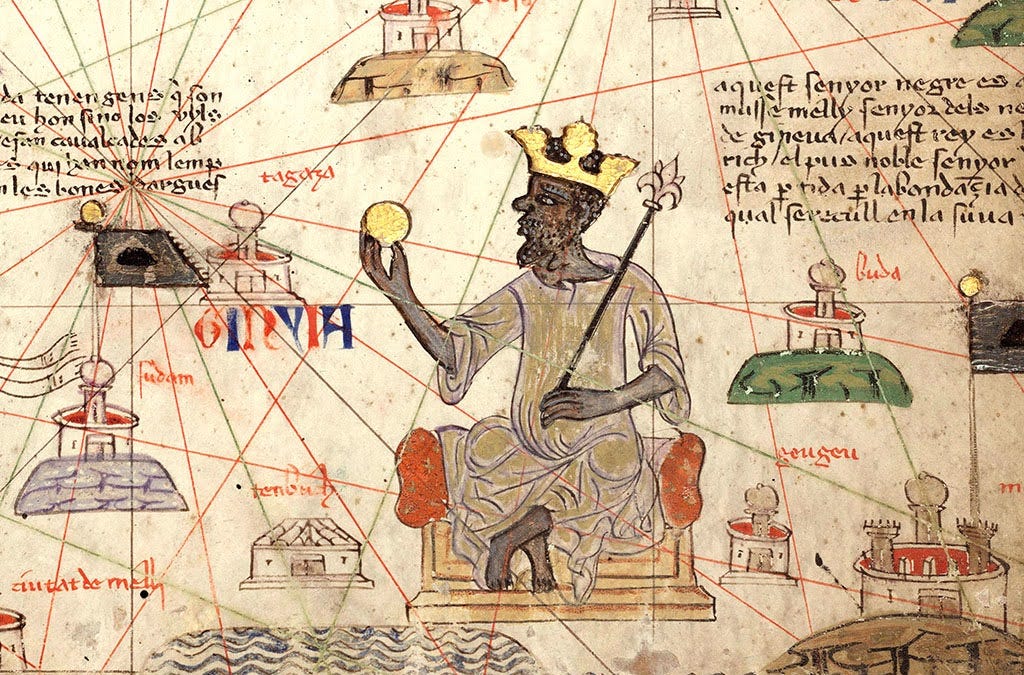 da tenen gens q̄ son
eu hon sino los uyls
caualcades ab
qui han nom
les bones dargues
aquest senyor negre es
musse melly senyor dels ne
de gineua / aquest rey es l
rich / el pus noble senyor
esta ꝑtida ꝑ labondāçia d
qual se recull en la suua
tagaza
buda
GINYIA
sudam
geugeu
tenbuch
m
ciutat de melly